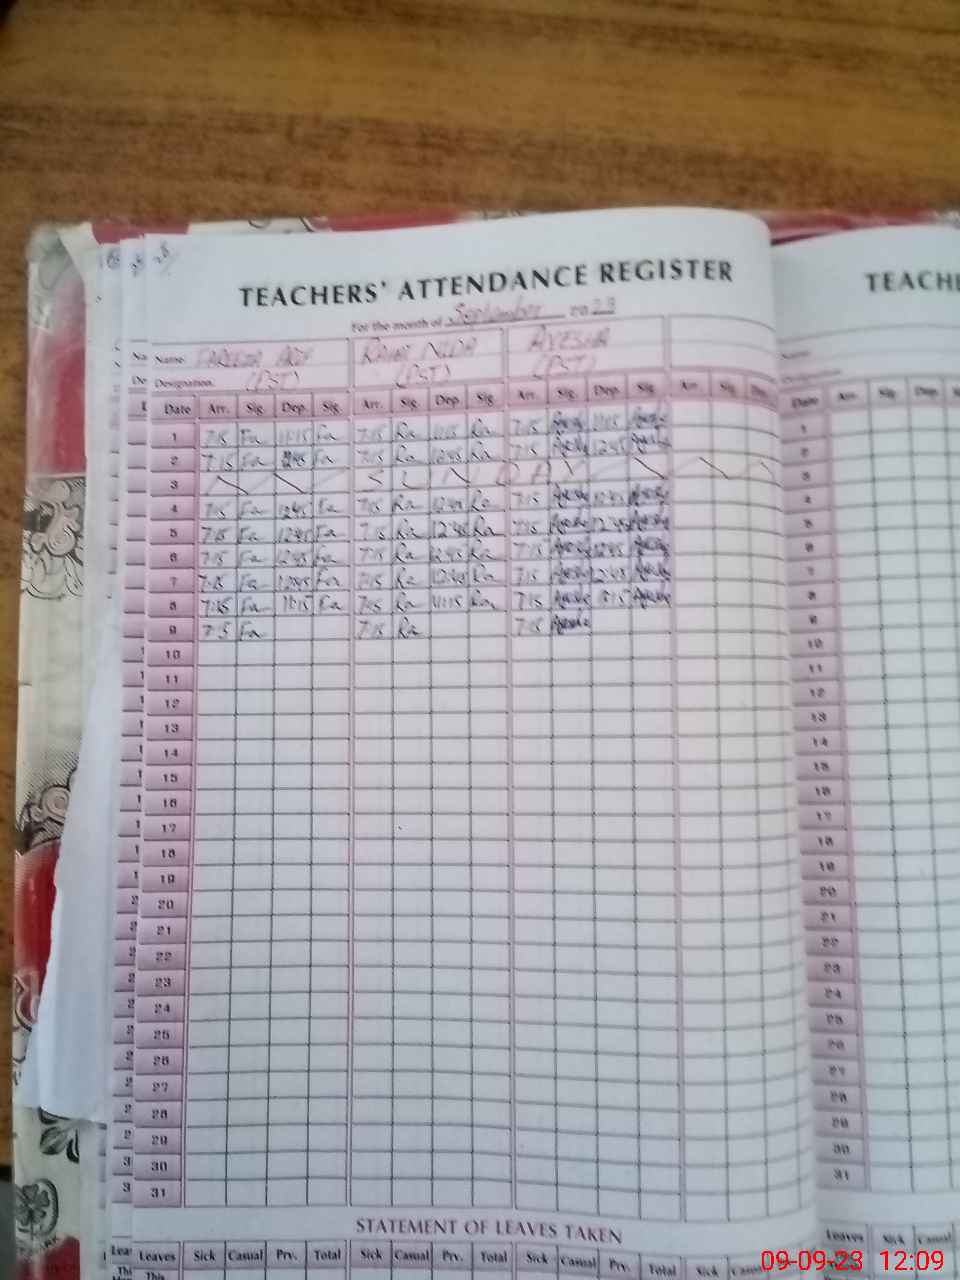 TEACHERS' ATTENDANCE REGISTER
TEACHE
For the month of September 2023
Name: RAHAT NIDA AYESHA
Designation. (PST) (PST) (PST)
Date Arr. Sig. Dep. Sig. Arr. Sig. Dep. Sig. Arr. Sig. Dep. Sig. Arr. Sig. Dep. Date Arr. Sig. Dep.
1 7:15 Fa 11:15 Fa 7:15 Ra 11:15 Ra 7:15 Ayesha 11:15 Ayesha 1
2 7:15 Fa 12:45 Fa 7:15 Ra 12:45 Ra 7:15 Ayesha 12:45 Ayesha 2
3 S U N D A Y 3
4 7:15 Fa 12:45 Fa 7:15 Ra 12:45 Ra 7:15 Ayesha 12:45 Ayesha 4
5 7:15 Fa 12:45 Fa 7:15 Ra 12:45 Ra 7:15 Ayesha 12:45 Ayesha 5
6 7:15 Fa 12:45 Fa 7:15 Ra 12:45 Ra 7:15 Ayesha 12:45 Ayesha 6
7 7:15 Fa 12:45 Fa 7:15 Ra 12:45 Ra 7:15 Ayesha 12:45 Ayesha 7
8 7:15 Fa 11:15 Fa 7:15 Ra 11:15 Ra 7:15 Ayesha 11:15 Ayesha 8
9 7:15 Fa 7:15 Ra 7:15 Ayesha 9
10 10
11 11
12 12
13 13
14 14
15 15
16 16
17 17
18 18
19 19
20 20
21 21
22 22
23 23
24 24
25 25
26 26
27 27
28 28
29 29
30 30
31 31
STATEMENT OF LEAVES TAKEN
Leaves Sick Casual Prv. Total Sick Casual Prv. Total Sick Casual Prv. Total Sick Leaves Sick Casual
This
09-09-23 12:09